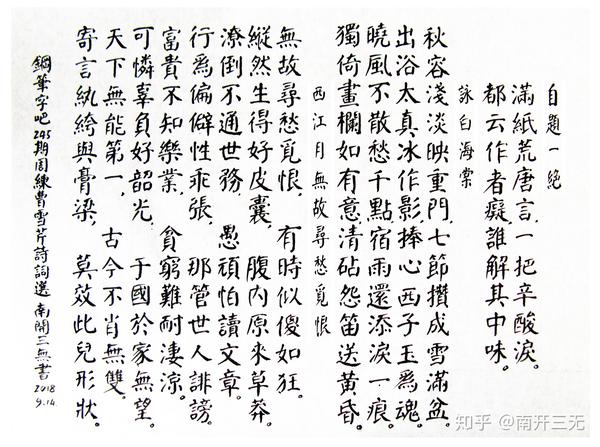 自題一絶
滿紙荒唐言,一把辛酸淚。
都云作者癡,誰解其中味。
詠白海棠
秋容淺淡映重門,七節攢成雪滿盆。
出浴太真冰作影,捧心西子玉爲魂。
曉風不散愁千點,宿雨還添淚一痕。
獨倚畫欄如有意,清砧怨笛送黃昏。
西江月無故尋愁覓恨
無故尋愁覓恨,有時似傻如狂。
縱然生得好皮囊,腹内原來草莽。
潦倒不通世務,愚頑怕讀文章。
行爲偏僻性乖張,那管世人誹謗。
富貴不知樂業,貧窮難耐淒涼。
可憐辜負好韶光,于國於家無望。
天下無能第一,古今不肖無雙。
寄言紈絝與膏粱,莫效此兒形狀。
鋼筆字吧245期周練曹雪芹詩詞選 南開三無書 2018 9.14.
知乎 @南开三无